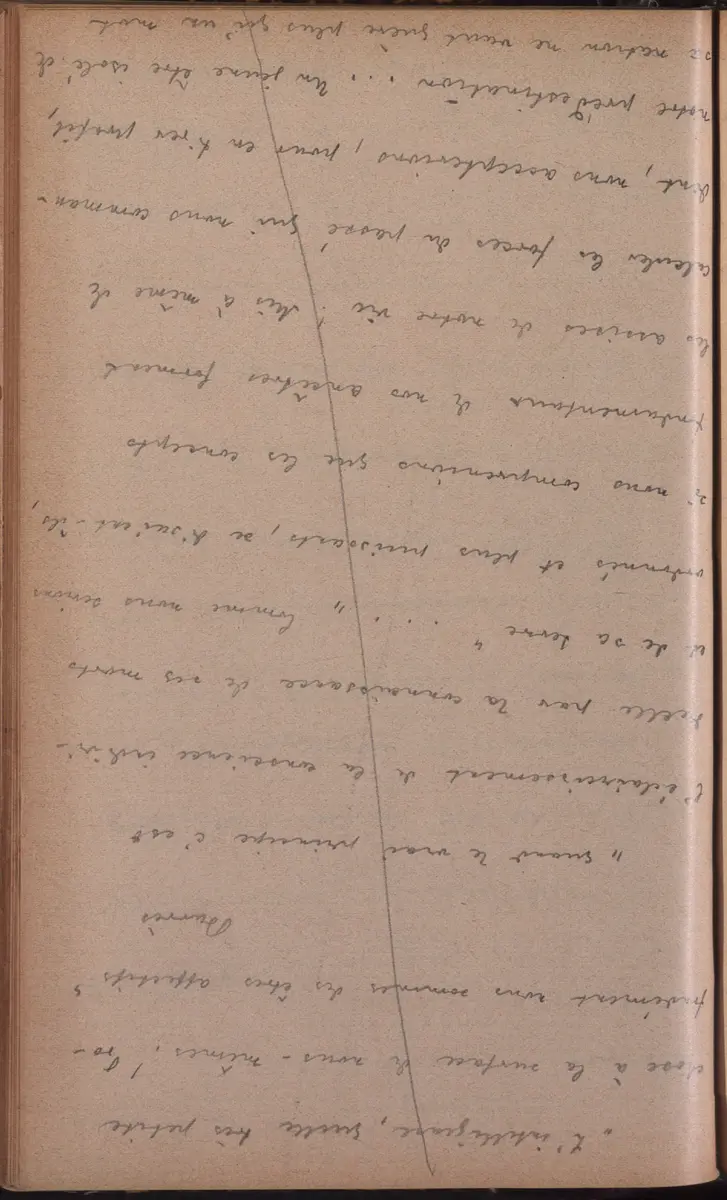 „ L'intelligence, quelle très petite
chose à la surface de nous-mêmes! Pro-
fondément nous sommes des êtres affectifs "
Barrès
„ quand le vrai principe c'est
l'éclaircissement de la conscience indivi-
duelle par la connaissance de ses morts
et de sa terre " . . . „ Comme nous serions
ordonnés et plus puissants, se disaient-ils,
si nous comprenions que les concepts
fondamentaux de nos ancêtres forment
les assises de notre vie! Mis à même de
calculer les forces du passé qui nous comman-
dent, nous accepterions, pour en tirer profit,
notre prédestination ... Un jeune être isolé de
sa nation ne vaut guère plus qu'un mot